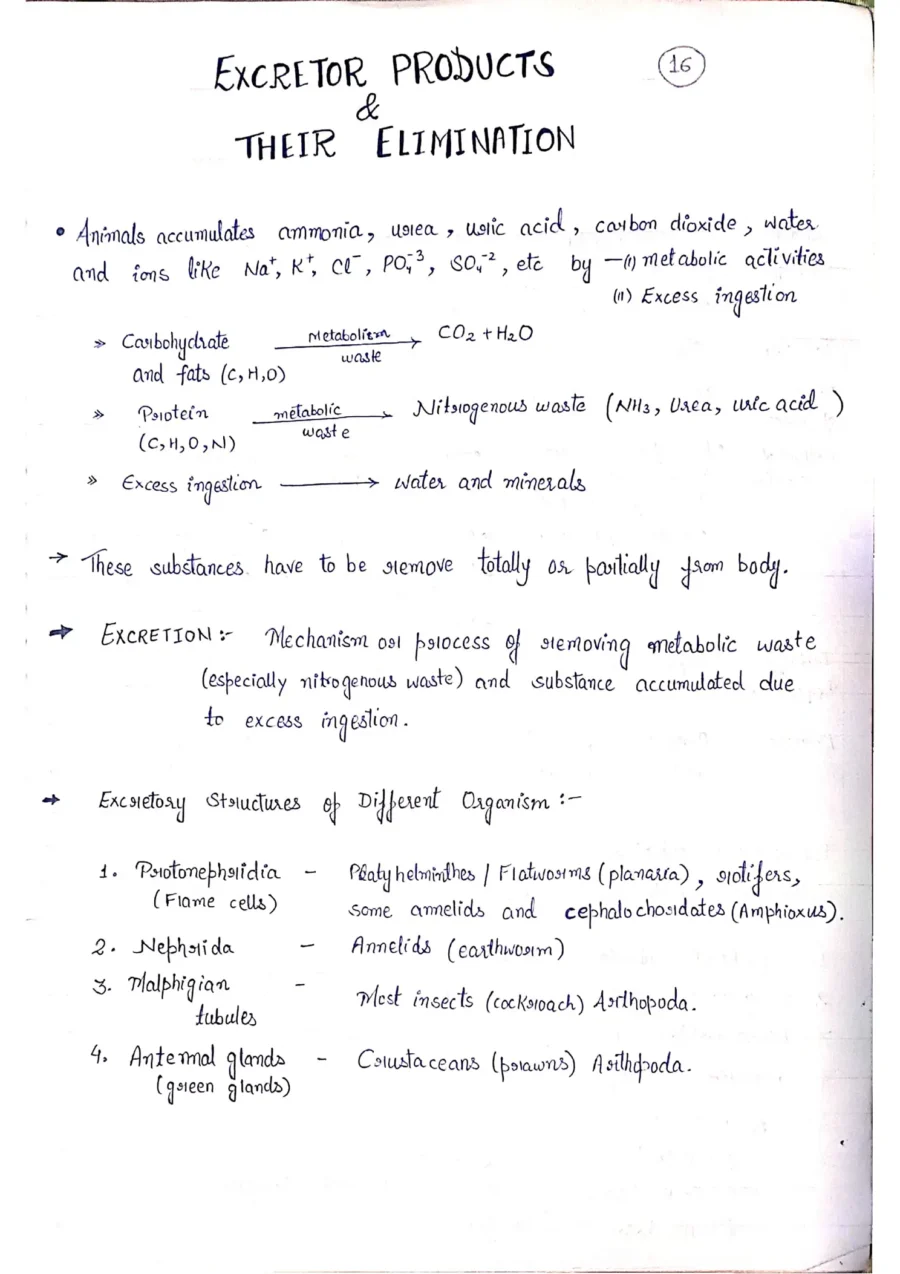 EXCRETOR PRODUCTS
16
&
THEIR ELIMINATION
• Animals accumulates ammonia, urea, uric acid, carbon dioxide, water
and ions like Na⁺, K⁺, Cl⁻, PO₄⁻³, SO₄⁻², etc by —(i) metabolic activities
(ii) Excess ingestion
» Carbohydrate Metabolism → CO₂ + H₂O
waste
and fats (C, H, O)
» Protein metabolic → Nitrogenous waste (NH₃, Urea, uric acid )
waste
(C, H, O, N)
» Excess ingestion → Water and minerals
→ These substances have to be remove totally or partially from body.
→ EXCRETION :- Mechanism or process of removing metabolic waste
(especially nitrogenous waste) and substance accumulated due
to excess ingestion.
→ Excretory Structures of Different Organism :-
1. Protonephridia - Platyhelminthes / Flatworms (planaria), rotifers,
(Flame cells) some annelids and cephalochordates (Amphioxus).
2. Nephrida - Annelids (earthworm)
3. Malphigian -
tubules Most insects (cockroach) Arthopoda.
4. Antennal glands - Crustaceans (prawns) Arthopoda.
(green glands)